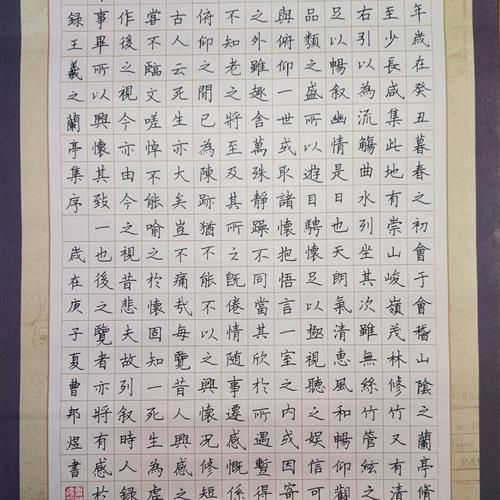 年歲在癸丑暮春之初會于會稽山陰之蘭亭修
至少長咸集此地有崇山峻嶺茂林修竹又有清
右引以為流觴曲水列坐其次雖無絲竹管絃之
足以暢叙幽情是日也天朗氣清惠風和暢仰觀
品類之盛所以遊目騁懷足以極視聽之娱信可
與俯仰一世或取諸懷抱悟言一室之内或因寄
之外雖趣舍萬殊靜躁不同當其欣於所遇暫得
不知老之將至及其所之既倦情隨事遷感慨係
俯仰之間已為陳跡猶不能不以之興懷況修短
古人云死生亦大矣豈不痛哉每覽昔人興感之
嘗不臨文嗟悼不能喻之於懷固知一死生為虛
作後之視今亦由今之視昔悲夫故列叙時人録
事異所以興懷其致一也後之覽者亦將有感於
録王羲之蘭亭集序 歲在庚子夏曹邦煜書